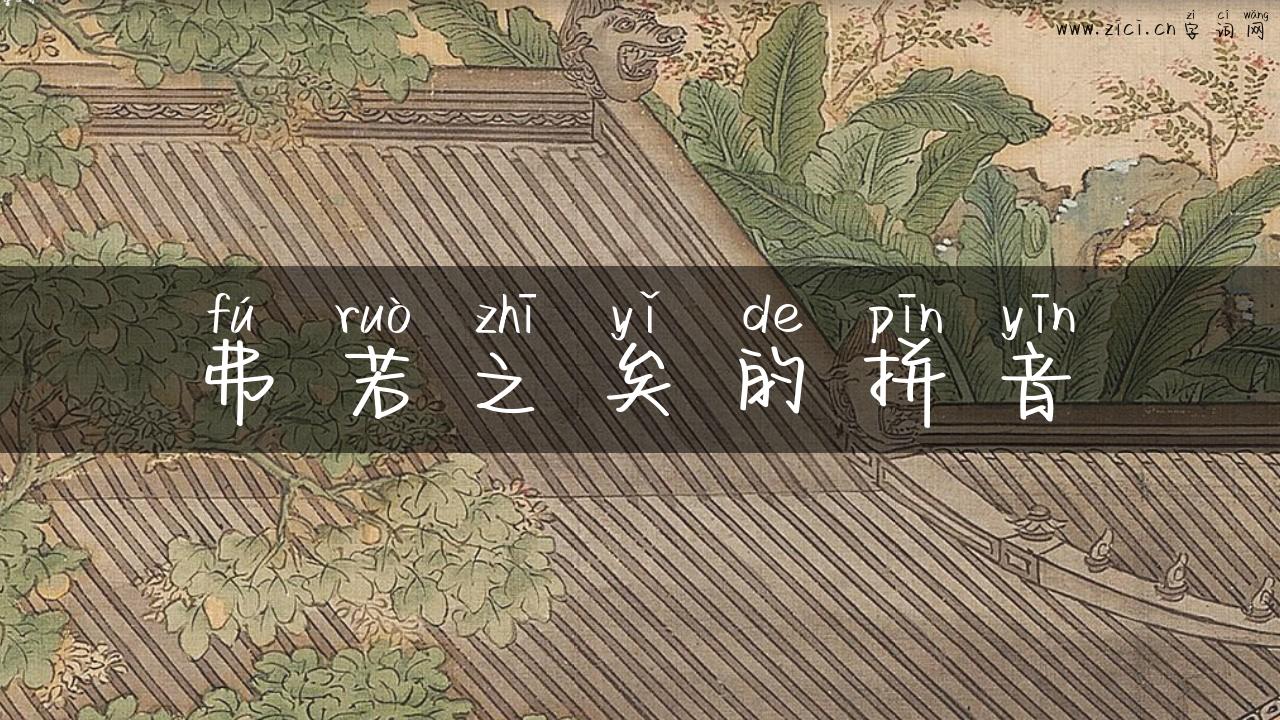 zì cí wǎng
www.zici.cn 字词网
fú ruò zhī yǐ de pīn yīn
弗若之矣的拼音